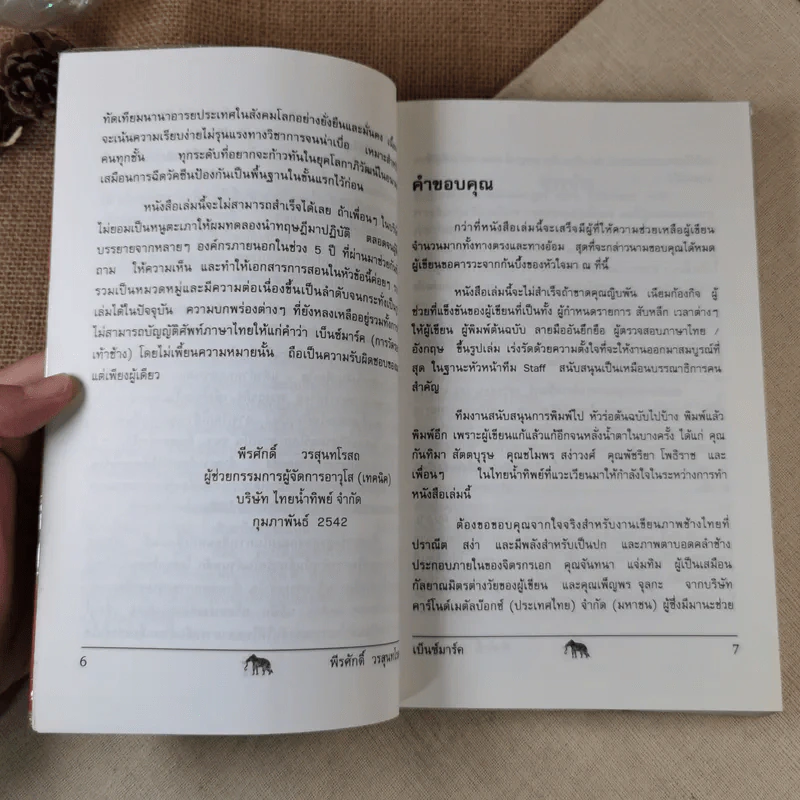 ทัดเทียมนานาอารยประเทศในสังคมโลกอย่างยั่งยืนและมั่นคง
จะเน้นความเรียบง่ายไม่รุนแรงทางวิชาการจนน่าเบื่อ
คนทุกชั้น ทุกระดับที่อยากจะก้าวทันในยุคโลกาภิวัฒน์
เสมือนการฉีดวัคซีนป้องกันเป็นพื้นฐานในขั้นแรกไว้ก่อน
หนังสือเล่มนี้จะไม่สามารถสำเร็จได้เลย ถ้าเพื่อนๆ
ไม่ยอมเป็นหนูตะเภาให้ผมทดลองนำทฤษฎีมาปฏิบัติ
บรรยายจากหลายๆ องค์กรภายนอกในช่วง 5 ปี ที่ผ่านมา
ถาม ให้ความเห็น และทำให้เอกสารการสอนในหัวข้อนี้ค่อยๆ
รวมเป็นหมวดหมู่และมีความต่อเนื่องขึ้นเป็นลำดับจนกระทั่ง
เล่มได้ในปัจจุบัน ความบกพร่องต่างๆ ที่ยังหลงเหลืออยู่รวมทั้ง
ไม่สามารถบัญญัติศัพท์ภาษาไทยให้แก่คำว่า เบ็นช์มาร์ค
เท้าช้าง) โดยไม่เพี้ยนความหมายนั้น ถือเป็นความรับผิดชอบของ
แต่เพียงผู้เดียว
พีรศักดิ์ วรสุนทโรสถ
ผู้ช่วยกรรมการผู้จัดการอาวุโส (เทคนิค)
บริษัท ไทยน้ำทิพย์ จำกัด
กุมภาพันธ์ 2542
6
พีรศักดิ์
คำขอบคุณ
กว่าที่หนังสือเล่มนี้จะเสร็จมีผู้ที่ให้ความช่วยเหลือผู้เขียน
จำนวนมากทั้งทางตรงและทางอ้อม สุดที่จะกล่าวนามขอบคุณได้หมด
ผู้เขียนขอคารวะจากก้นบึ้งของหัวใจมา ณ ที่นี้
หนังสือเล่มนี้จะไม่สำเร็จถ้าขาดคุณญิบพัน เนียมก้องกิจ ผู้
ช่วยที่แข็งขันของผู้เขียนที่เป็นทั้ง ผู้กำหนดรายการ สับหลีก เวลาต่างๆ
ให้ผู้เขียน ผู้พิมพ์ต้นฉบับ ลายมืออันยึกยือ ผู้ตรวจสอบภาษาไทย /
อังกฤษ ขึ้นรูปเล่ม เร่งรัดด้วยความตั้งใจที่จะให้งานออกมาสมบูรณ์ที่
สุด ในฐานะหัวหน้าทีม Staff สนับสนุนเป็นเหมือนบรรณาธิการคน
สำคัญ
ทีมงานสนับสนุนการพิมพ์ไป หัวร่อต้นฉบับไปบ้าง พิมพ์แล้ว
พิมพ์อีก เพราะผู้เขียนแก้แล้วแก้อีกจนหลั่งน้ำตาในบางครั้ง ได้แก่ คุณ
กันทิมา สัตตบุรุษ คุณชไมพร สง่าวงศ์ คุณพัชริยา โพธิราช และ
เพื่อนๆ ในไทยน้ำทิพย์ที่แวะเวียนมาให้กำลังใจในระหว่างการทำ
หนังสือเล่มนี้
ต้องขอขอบคุณจากใจจริงสำหรับงานเขียนภาพช้างไทยที่
ปราณีต สง่า และมีพลังสำหรับเป็นปก และภาพตาบอดคลำช้าง
ประกอบภายในของจิตรกรเอก คุณจันทนา แจ่มทิม ผู้เป็นเสมือน
กัลยาณมิตรต่างวัยของผู้เขียน และคุณเพ็ญพร จุลกะ จากบริษัท
คาร์โนด์เมตัลบ๊อกซ์ (ประเทศไทย) จำกัด (มหาชน) ผู้ซึ่งมีมานะช่วย
เบ็นช์มาร์ค
7